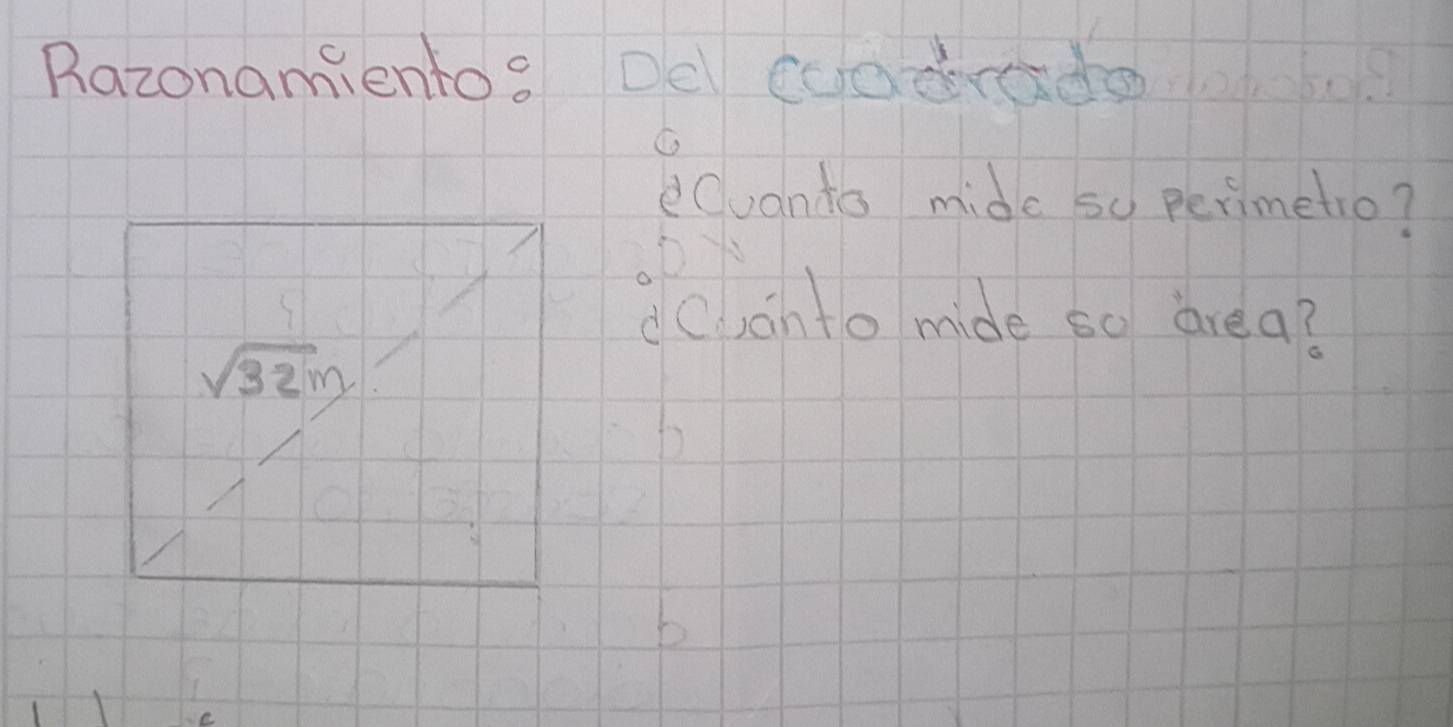 Razonamiento: Del cuadrado
¿Cuanto mide su perimetro?
¿Cuánto mide su área?
√32 m